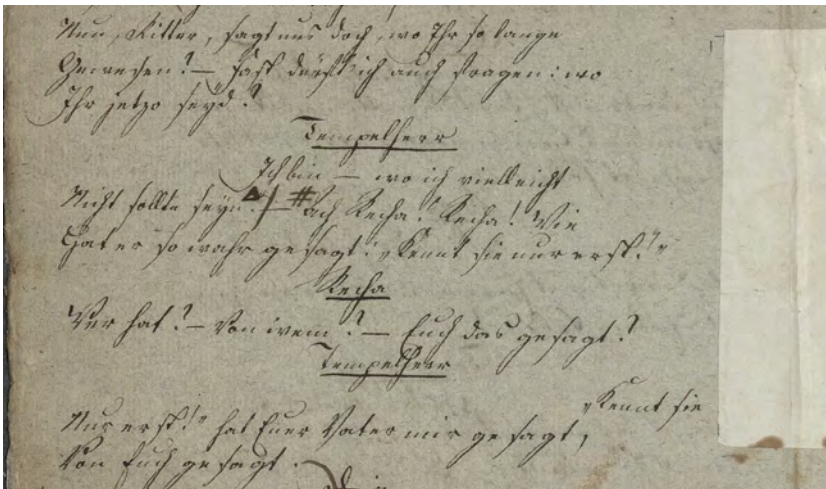 Nun, Ritter, sagt uns doch, wo Ihr so lange
Gewesen? – fast dürft' ich auch fragen: wo
Ihr jetzo seyd?
Tempelherr
Ich bin – wo ich vielleicht
Nicht sollte seyn. – # ach Recha! Recha! Wie
Hat er so wahr gesagt: „Kennt sie nur erst!"
Recha
Wer hat? – Von wem? – Euch das gesagt?
Tempelherr
„Kennt sie
Nur erst!" hat Euer Vater mir gesagt,
Von Euch gesagt.